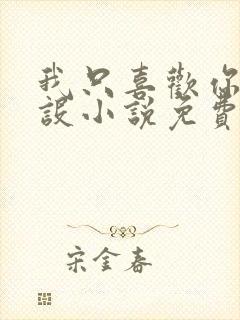 我只喜歡你
設小說免費
宋金春